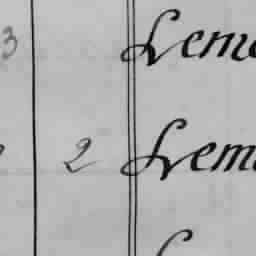 3 Leme
2 Leme